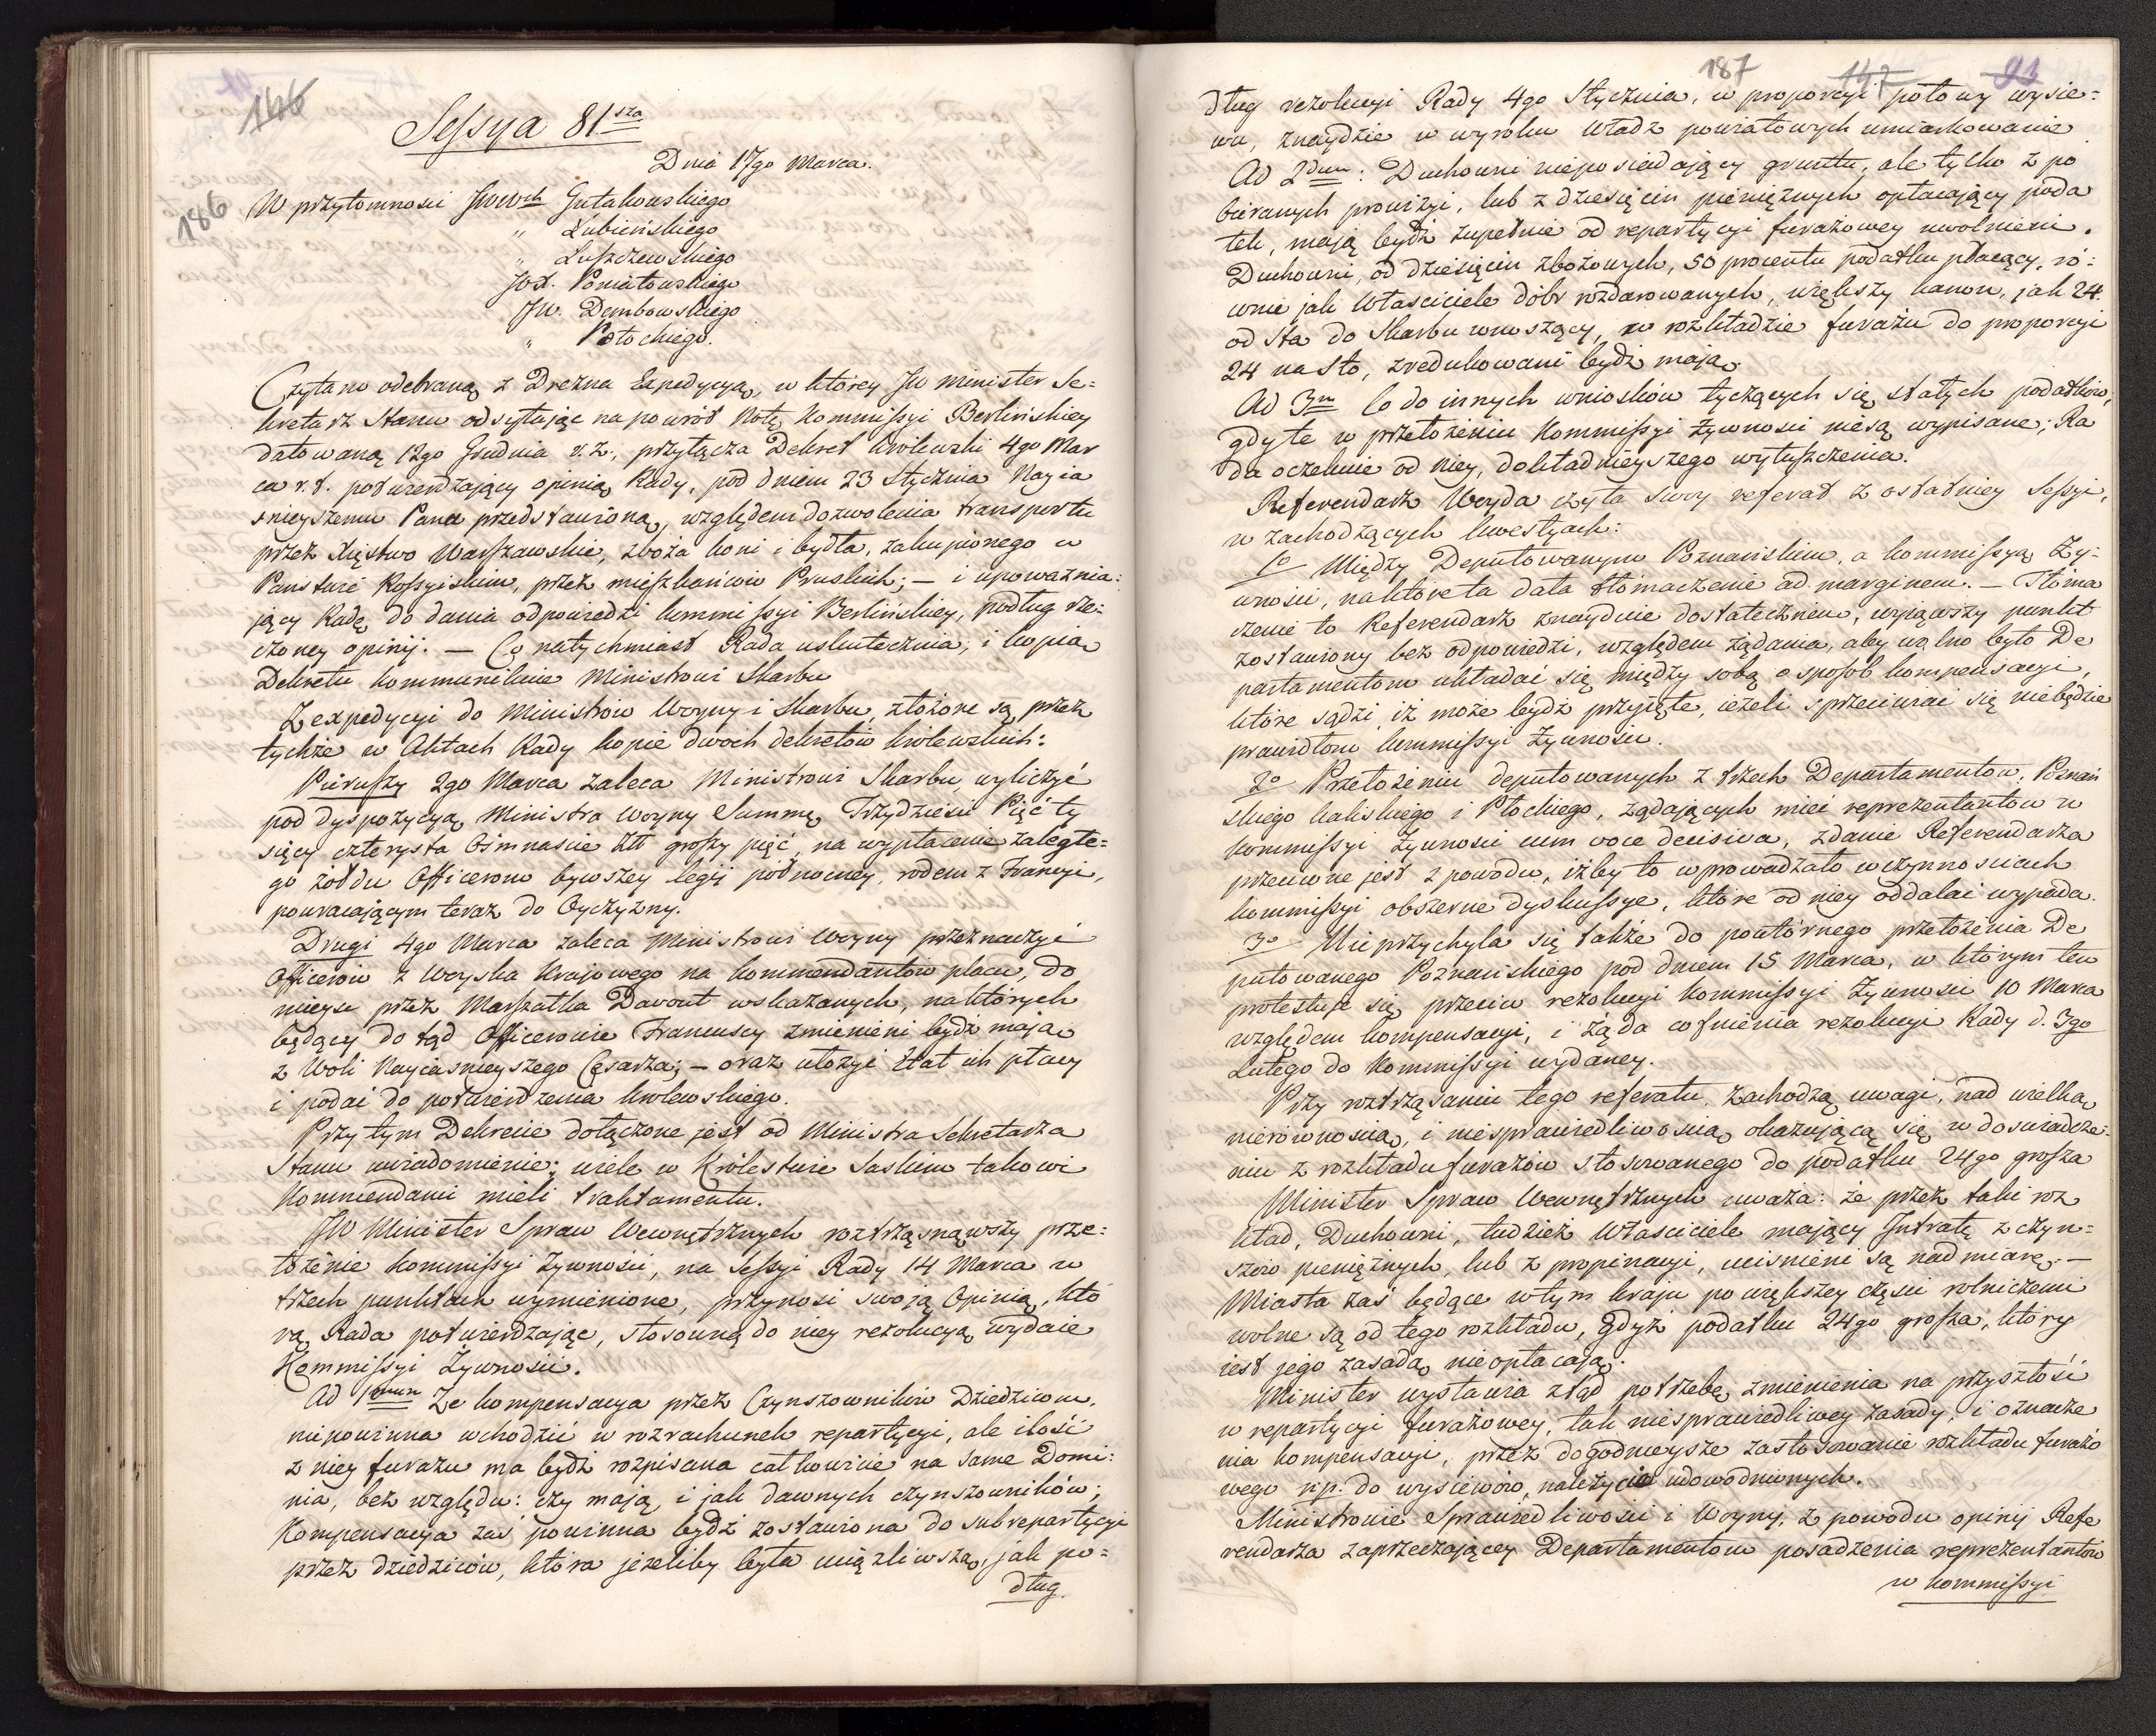 146
186
Sessya 81sza
Dnia 17go Marca.
W przytomności JWWch Gutakowskiego
" Łubieńskiego
" Łuszczewskiego
JOX. Poniatowskiego
JW. Dembowskiego
" Potockiego.
Czytano odebraną z Drezna Expedycyą, w którey JW Minister Se=
kretarz Stanu odsyłając na powrót Notę Kommissyi Berlińskiey
datowaną 12go Grudnia r.z., przyłącza Dekret Krolewski 4go Mar
ca r.t. potwierdzający opinią Rady, pod dniem 23 Stycznia Nayia
śnieyszemu Panu przedstawioną, względem dozwolenia transportu
przez Xięstwo Warszawskie, zboża koni i bydła, zakupionego w
Państwie Rossyiskim, przez mieszkańców Pruskich; — i upoważnia=
jący Radę do dania odpowiedzi kommissyi Berlińskiey, podług rze=
czoney opinij. — Co natychmiast Rada uskutecznia; i kopią
Dekretu kommunikuie Ministrowi Skarbu
Z expedycyi do Ministrow Woyny i Skarbu, złożone są przez
tychże w Aktach Rady kopie dwoch dekretów krolewskich:
Pierwszy 2go Marca zaleca Ministrowi Skarbu, wyliczyć
pod dyspozycyą Ministra Woyny Summę Trzydzieści Pięć ty
sięcy czterysta Ośmnaście Złł groszy pięć, na wypłacenie zaległe=
go żołdu Officerom bywszey legij północney, rodem z Francyi,
powracającym teraz do Oyczyzny.
Drugi 4go Marca zaleca Ministrowi Woyny przeznaczyć
Officerów z Woyska Krajowego na kommendantów placu, do
mieysc przez Marszałka Davout wskazanych, na których
będący do tąd Officerowie Francuscy zmienieni bydź mają
z Woli Nayiasnieyszego Cesarza; — oraz ułożyć Etat ich płacy
i podać do potwierdzenia krolewskiego.
Przy tym Dekrecie dołączone jest od Ministra Sekretarza
Stanu uwiadomienie; wiele w Królestwie Saskim takowi
Kommendanci mieli traktamentu.
JW Minister Spraw Wewnętrznych roztrząsnąwszy prze=
łożenie Kommissyi Żywności, na Sessyi Rady 14 Marca w
trzech punktach wymienione, przynosi swoją Opinią, któ
rą Rada potwierdzając, stosowną do niey rezolucyą wydaie
Kommissyi Żywności.
Ad 1mum Że kompensacya przez Czynszowników Dziedzicom,
niepowinna wchodzić w rozrachunek repartycyi, ale ilość
z niey furażu ma bydź rozpisana całkowicie na same Domi=
nia, bez względu: czy mają, i jak dawnych czynszowników;
Kompensacya zaś powinna bydź zostawiona do subrepartycyi
przez dziedziców, która jeżeliby była uciążliwszą, jak po=
dług
187 147 91
dług rezolucyi Rady 4go Stycznia, w proporcyi połowy wysie=
wu, znaydzie w wyroku Władz powiatowych umiarkowanie
Ad 2dum: Duchowni nieposiadający gruntu, ale tylko z po
bieranych prowizyi, lub z dziesięcin pieniężnych opłacający poda
tek, mają bydź zupełnie od repartycyi furażowey uwolnieni.
Duchowni, od dziesięcin zbożowych, 50 procentu podatku płacący, ró=
wnie jak Właściciele dóbr rozdarowanych, większy kanon, jak 24.
od Sta do Skarbu wnoszący, w rozkładzie furażu do proporcyi
24 na Sto, zredukowani bydź mają.
Ad 3m Co do innych wniosków tyczących się stałych podatków,
gdy te w przełożeniu Kommissyi Żywności niesą wypisane; Ra
da oczekuie od niey, dokładnieyszego wyłuszczenia.
Referendarz Woyda czyta swoy referat z ostatniey Sessyi,
w zachodzących kwestyach:
1o Między Deputowanym Poznańskim, a kommissyą Ży=
wności, na które ta dała tłómaczenie ad marginem. — Tłóma
czenie to Referendarz znayduie dostatecznem, wyjąwszy punkt
zostawiony bez odpowiedzi, względem żądania, aby wolno było De
partamentom układać się między sobą o sposob kompensacyi,
które sądzi iż może bydź przyięte, ieżeli sprzeciwiać się niebędzie
prawidłom kommissyi Żywności.
2o Przełożeniu deputowanych z trzech Departamentow, Poznań
skiego Kaliskiego i Płockiego, żądających mieć reprezentantow w
kommissyi Żywności cum voce decisiva, zdanie Referendarza
przeciwne jest z powodu, iżby to wprowadzało w czynnosciach
kommissyi obszerne dyskussye, które od niey oddalać wypada.
3o Nieprzychyla się także do powtórnego przełożenia De
putowanego Poznańskiego pod dniem 15 Marca, w którym ten
protestuje się przeciw rezolucyi Kommissyi Żywności 10 Marca
względem kompensacyi, i żąda cofnienia rezolucyi Rady d. 3go
Lutego do Kommissyi wydaney.
Przy roztrząsaniu tego referatu, zachodzą uwagi, nad wielką
nierównością, i niesprawiedliwością okazującą się w doswiadcze=
niu z rozkładu furażów stosowanego do podatku 24go grosza
Minister Spraw Wewnętrznych uważa: że przez taki roz
kład, Duchowni, tudzież Właściciele mający Intratę z czyn=
szów pieniężnych, lub z propinacyi, uciśnieni są nad miarę; —
Miasta zaś będące w tym kraju po większey części rolniczemi
wolne są od tego rozkładu, gdyż podatku 24go grosza, który
iest jego zasadą, nieopłacają.
Minister wystawia ztąd potrzebę zmienienia na przyszłość
w repartycyi furażowey, tak niesprawiedliwey zasady, i oznacze
nia kompensacyi, przez dogodnieysze zastosowanie rozkładu furażo
wego np. do wysiewów, należycie udowodnionych.
Ministrowie Sprawiedliwości i Woyny, z powodu opinij Refe
rendarza zaprzeczającey Departamentom posadzenia reprezentantów
w kommissyi